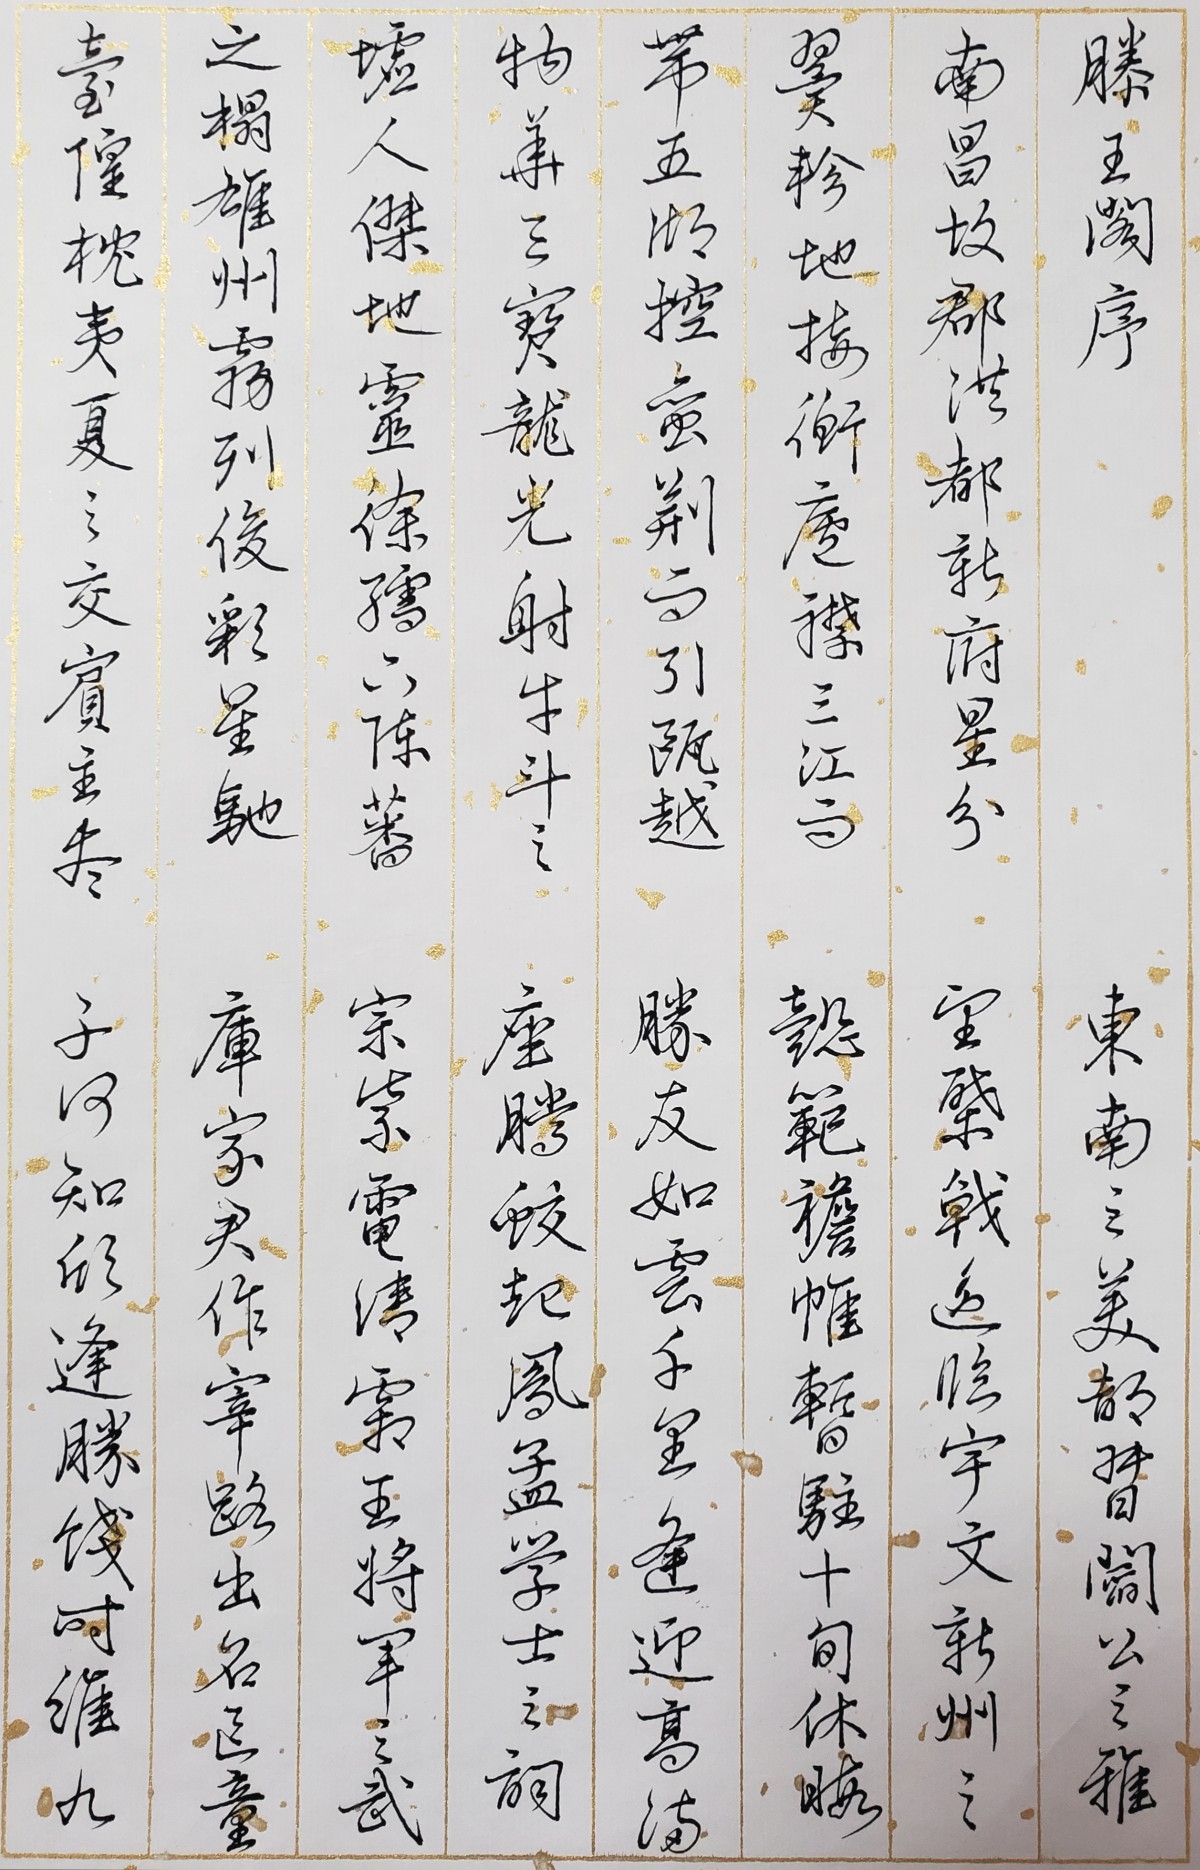 滕王閣序
南昌故郡洪都新府星分
翼軫地接衡廬襟三江而
帶五湖控蠻荊而引甌越
物華天寶龍光射牛斗之
墟人傑地靈徐孺下陳蕃
之榻雄州霧列俊彩星馳
臺隍枕夷夏之交賓主盡
東南之美都督閻公之雅
望棨戟遙臨宇文新州之
懿範襜帷暫駐十旬休暇
勝友如雲千里逢迎高滿
座騰蛟起鳳孟学士之詞
宗紫電清霜王將軍之武
庫家君作宰路出名區童
子何知躬逢勝餞时維九